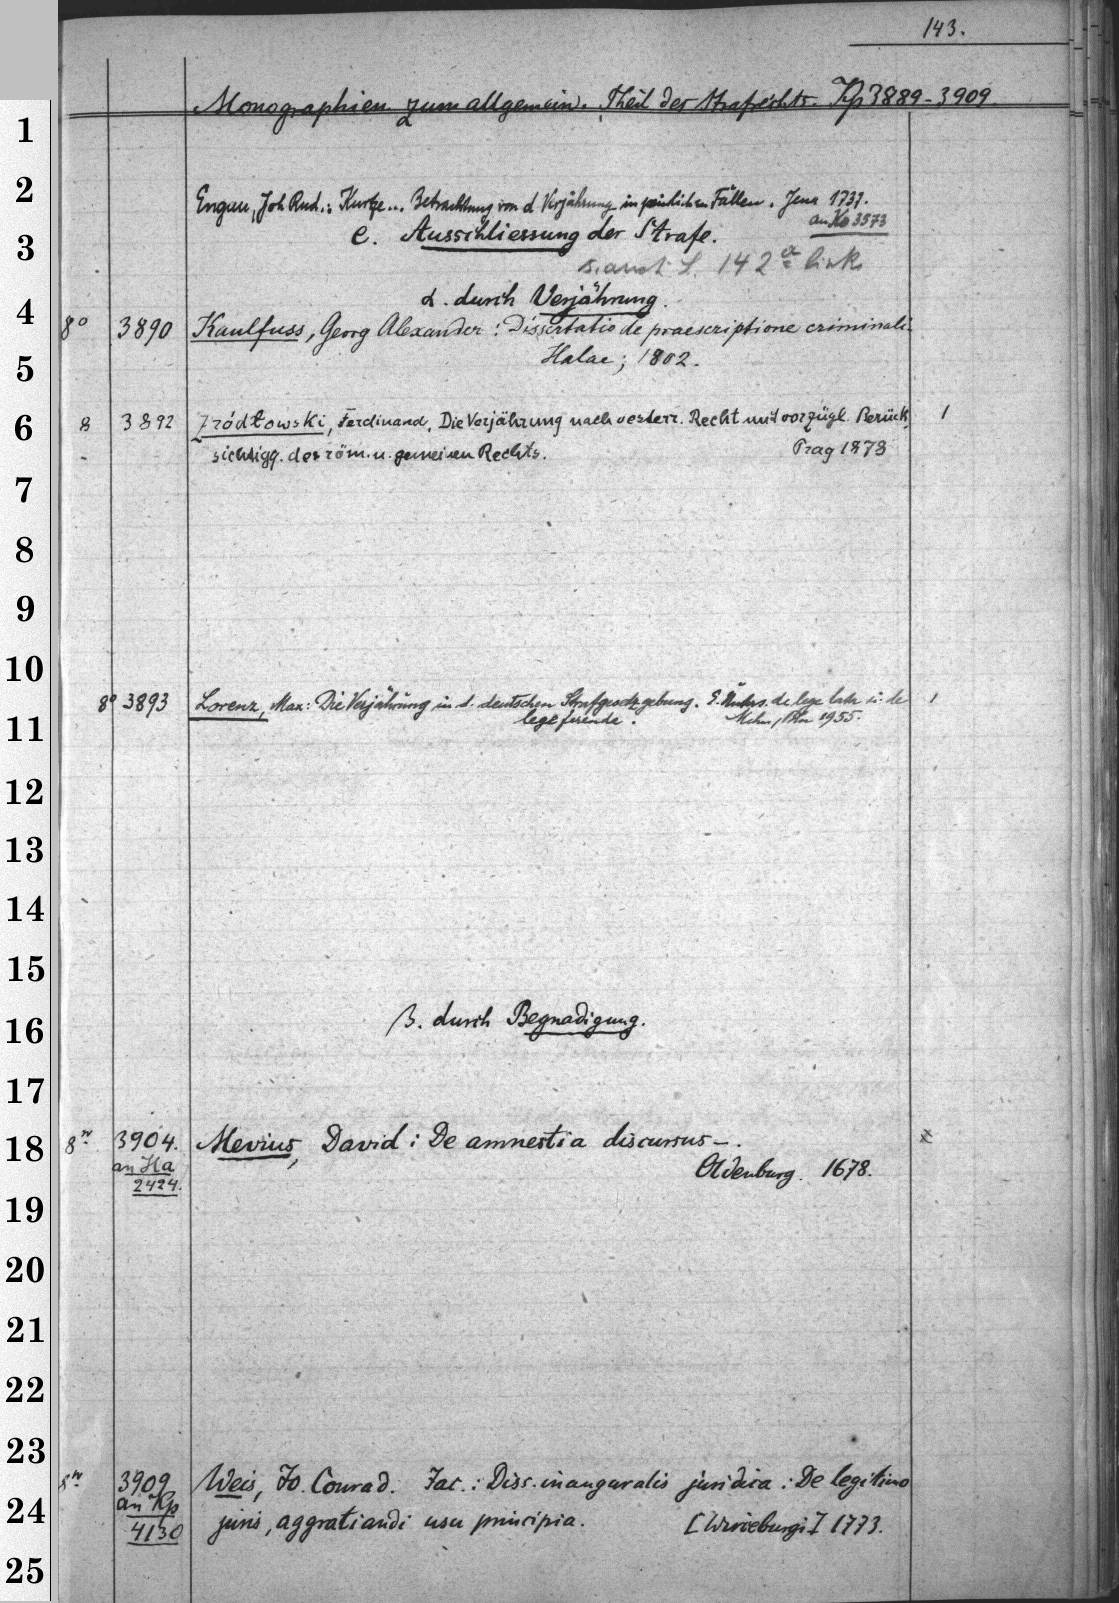 143.
Monographien zum allgemein. Theil des Strafrechts. Kp 3889-3909.
Engau, Joh. Rud.: Kurtze... Betrachtung von d. Verjährung in peinlichen Fällen. Jena 1737.
an Ko 3573
e. Ausschliessung der Strafe.
s. auch S. 142 a links
α. durch Verjährung.
8° 3890 Kaulfuss, Georg Alexander: Dissertatio de praescriptione criminali.
Halae; 1802.
8 3892 Zródłowski, Ferdinand, Die Verjährung nach oesterr. Recht mit vorzügl. Berück- 1
sichtigg. des röm. u. gemeinen Rechts. Prag 1878
8° 3893 Lorenz, Max: Die Verjährung in d. deutschen Strafgesetzgebung. E. Unters. de lege lata u. de 1
lege ferenda. 1955.
β. durch Begnadigung.
8° 3904. Mevius, David: De amnestia discursus -. x
an Ha
2424. Oldenburg. 1678.
8° 3909 Weis, Jo. Conrad. Jac.: Diss. inauguralis juridica: De legitimo
an Kp
4130 juris, aggratiandi usu principia. [Wirceburgi] 1773.
1
2
3
4
5
6
7
8
9
10
11
12
13
14
15
16
17
18
19
20
21
22
23
24
25